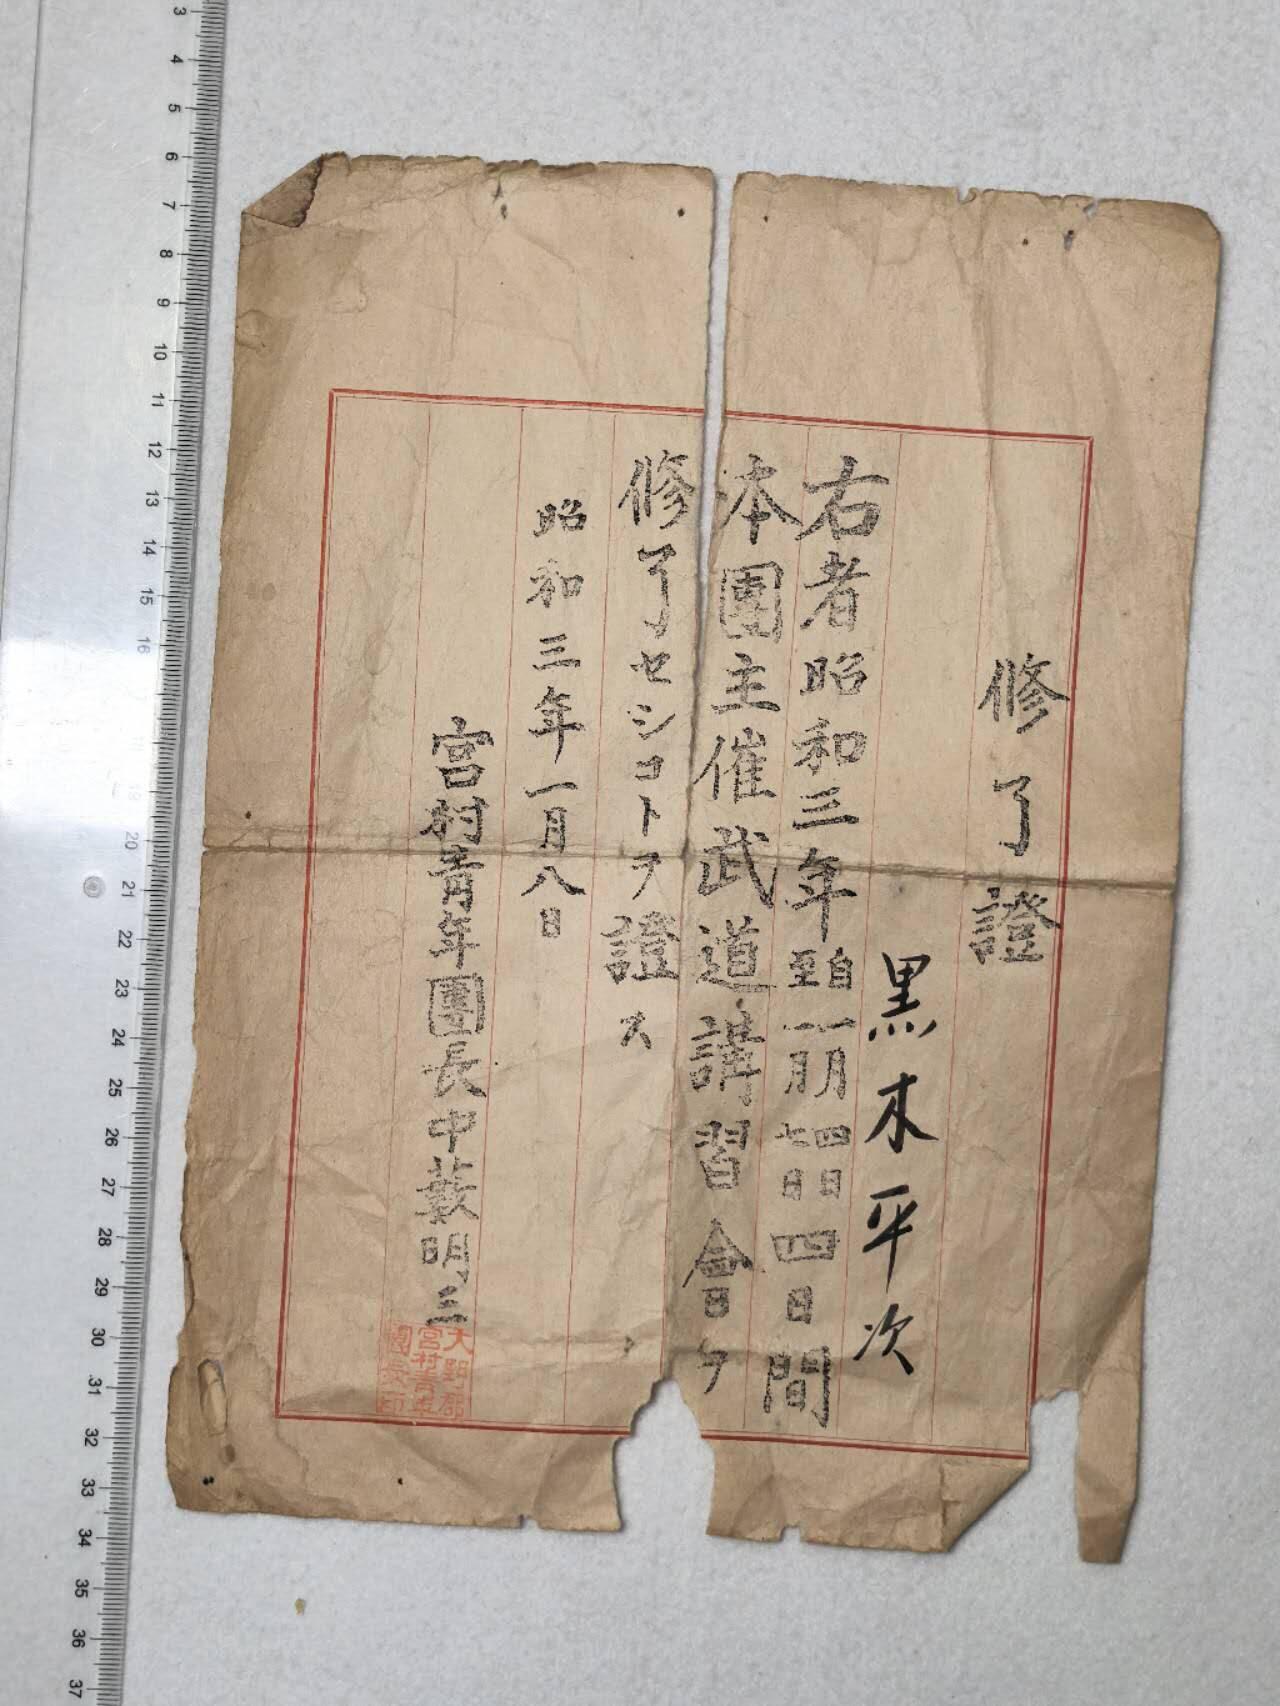 修了證
黒木平次
右者昭和三年自一月四日至一月七日四日間
本團主催武道講習會ヲ
修了セシコトヲ證ス
昭和三年一月八日
宮村青年團長中薮明三
大野郡
宮村青年
團長印
3
4
5
6
7
8
9
10
11
12
13
14
15
16
19
20
21
22
23
24
25
26
27
28
29
30
31
32
33
34
35
36
37